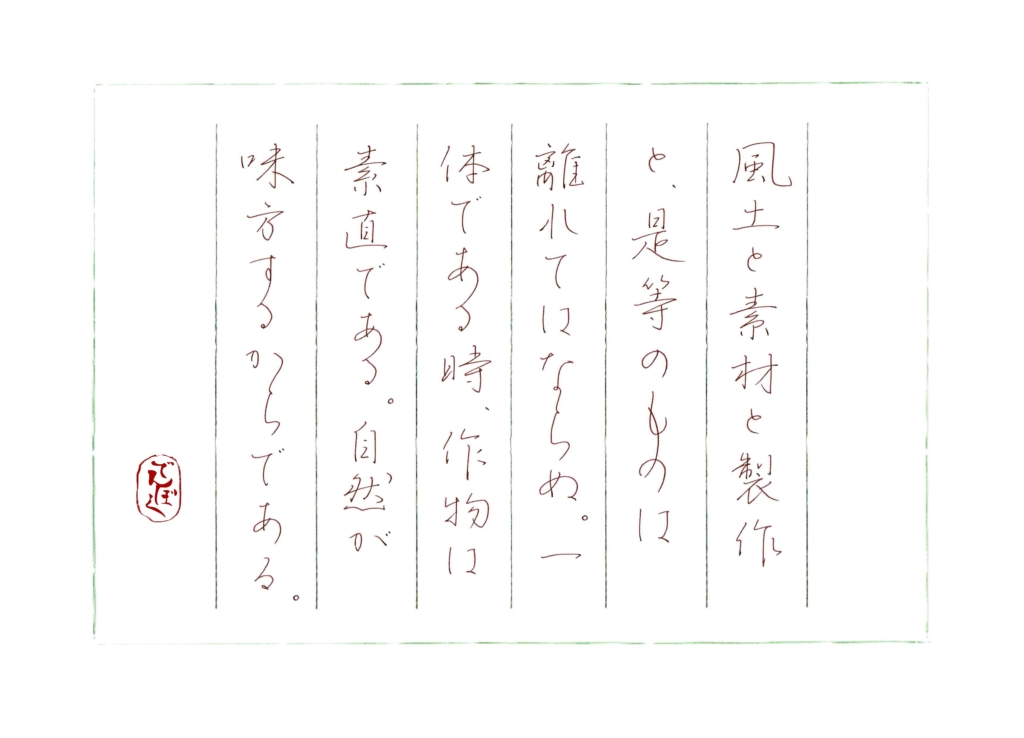 風土と素材と製作
と、是等のものは
離れてはならぬ。一
体である時、作物は
素直である。自然が
味方するからである。
でんぼく